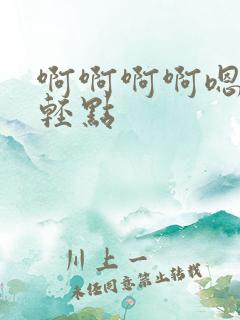 啊啊啊啊嗯
輕點
川上一
未经同意禁止转载